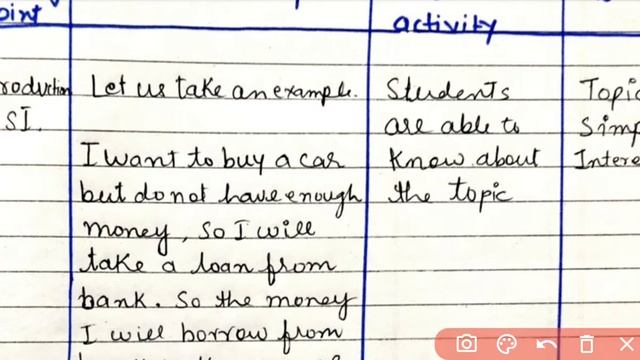 oint
activity
roduction
SI.
Let us take an example.
I want to buy a car
but do not have enough
money, so I will
take a loan from
bank. So the money
I will borrow from
Students
are able to
know about
the topic
Topic
Simp
Intere